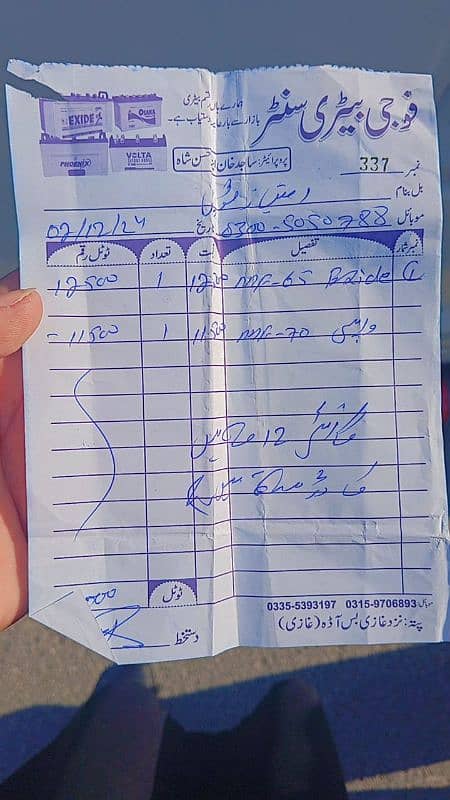 فوجی بیٹری سنٹر
ہمارے ہاں ہر قسم بیٹری
بازار سے بارعایت دستیاب ہے۔
EXIDE OSAKA
PHOENIX VOLTA
پروپرائیٹر: ساجد خان حسن شاہ
نمبر 337
بل بنام
موبائل 0300-5050788 تاریخ 02/12/24
نمبر شمار تفصیل تعداد ٹوٹل رقم
MF-65 1 12500
واپسی MF-70 11500 1 11500
12
ٹوٹل
دستخط
موبائل: 0315-9706893 0335-5393197
پتہ: نزد غازی بس آڈہ (غازی)